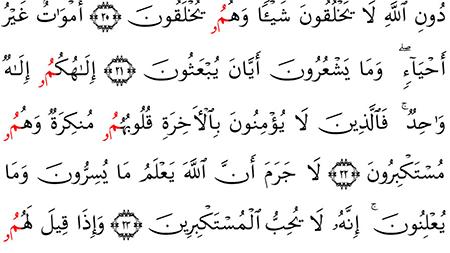 دُونِ ٱللَّهِ لَا يَخْلُقُونَ شَيْـًٔا وَهُمُۥ يُخْلَقُونَ ۝٢٠ أَمْوَٰتٌ غَيْرُ
أَحْيَآءٖۖ وَمَا يَشْعُرُونَ أَيَّانَ يُبْعَثُونَ ۝٢١ إِلَٰهُكُمُۥ إِلَٰهٞ
وَٰحِدٞۚ فَٱلَّذِينَ لَا يُؤْمِنُونَ بِٱلْأٓخِرَةِ قُلُوبُهُمُۥ مُنكِرَةٞ وَهُمُۥ
مُسْتَكْبِرُونَ ۝٢٢ لَا جَرَمَ أَنَّ ٱللَّهَ يَعْلَمُ مَا يُسِرُّونَ وَمَا
يُعْلِنُونَۚ إِنَّهُۥ لَا يُحِبُّ ٱلْمُسْتَكْبِرِينَ ۝٢٣ وَإِذَا قِيلَ لَهُمُۥ